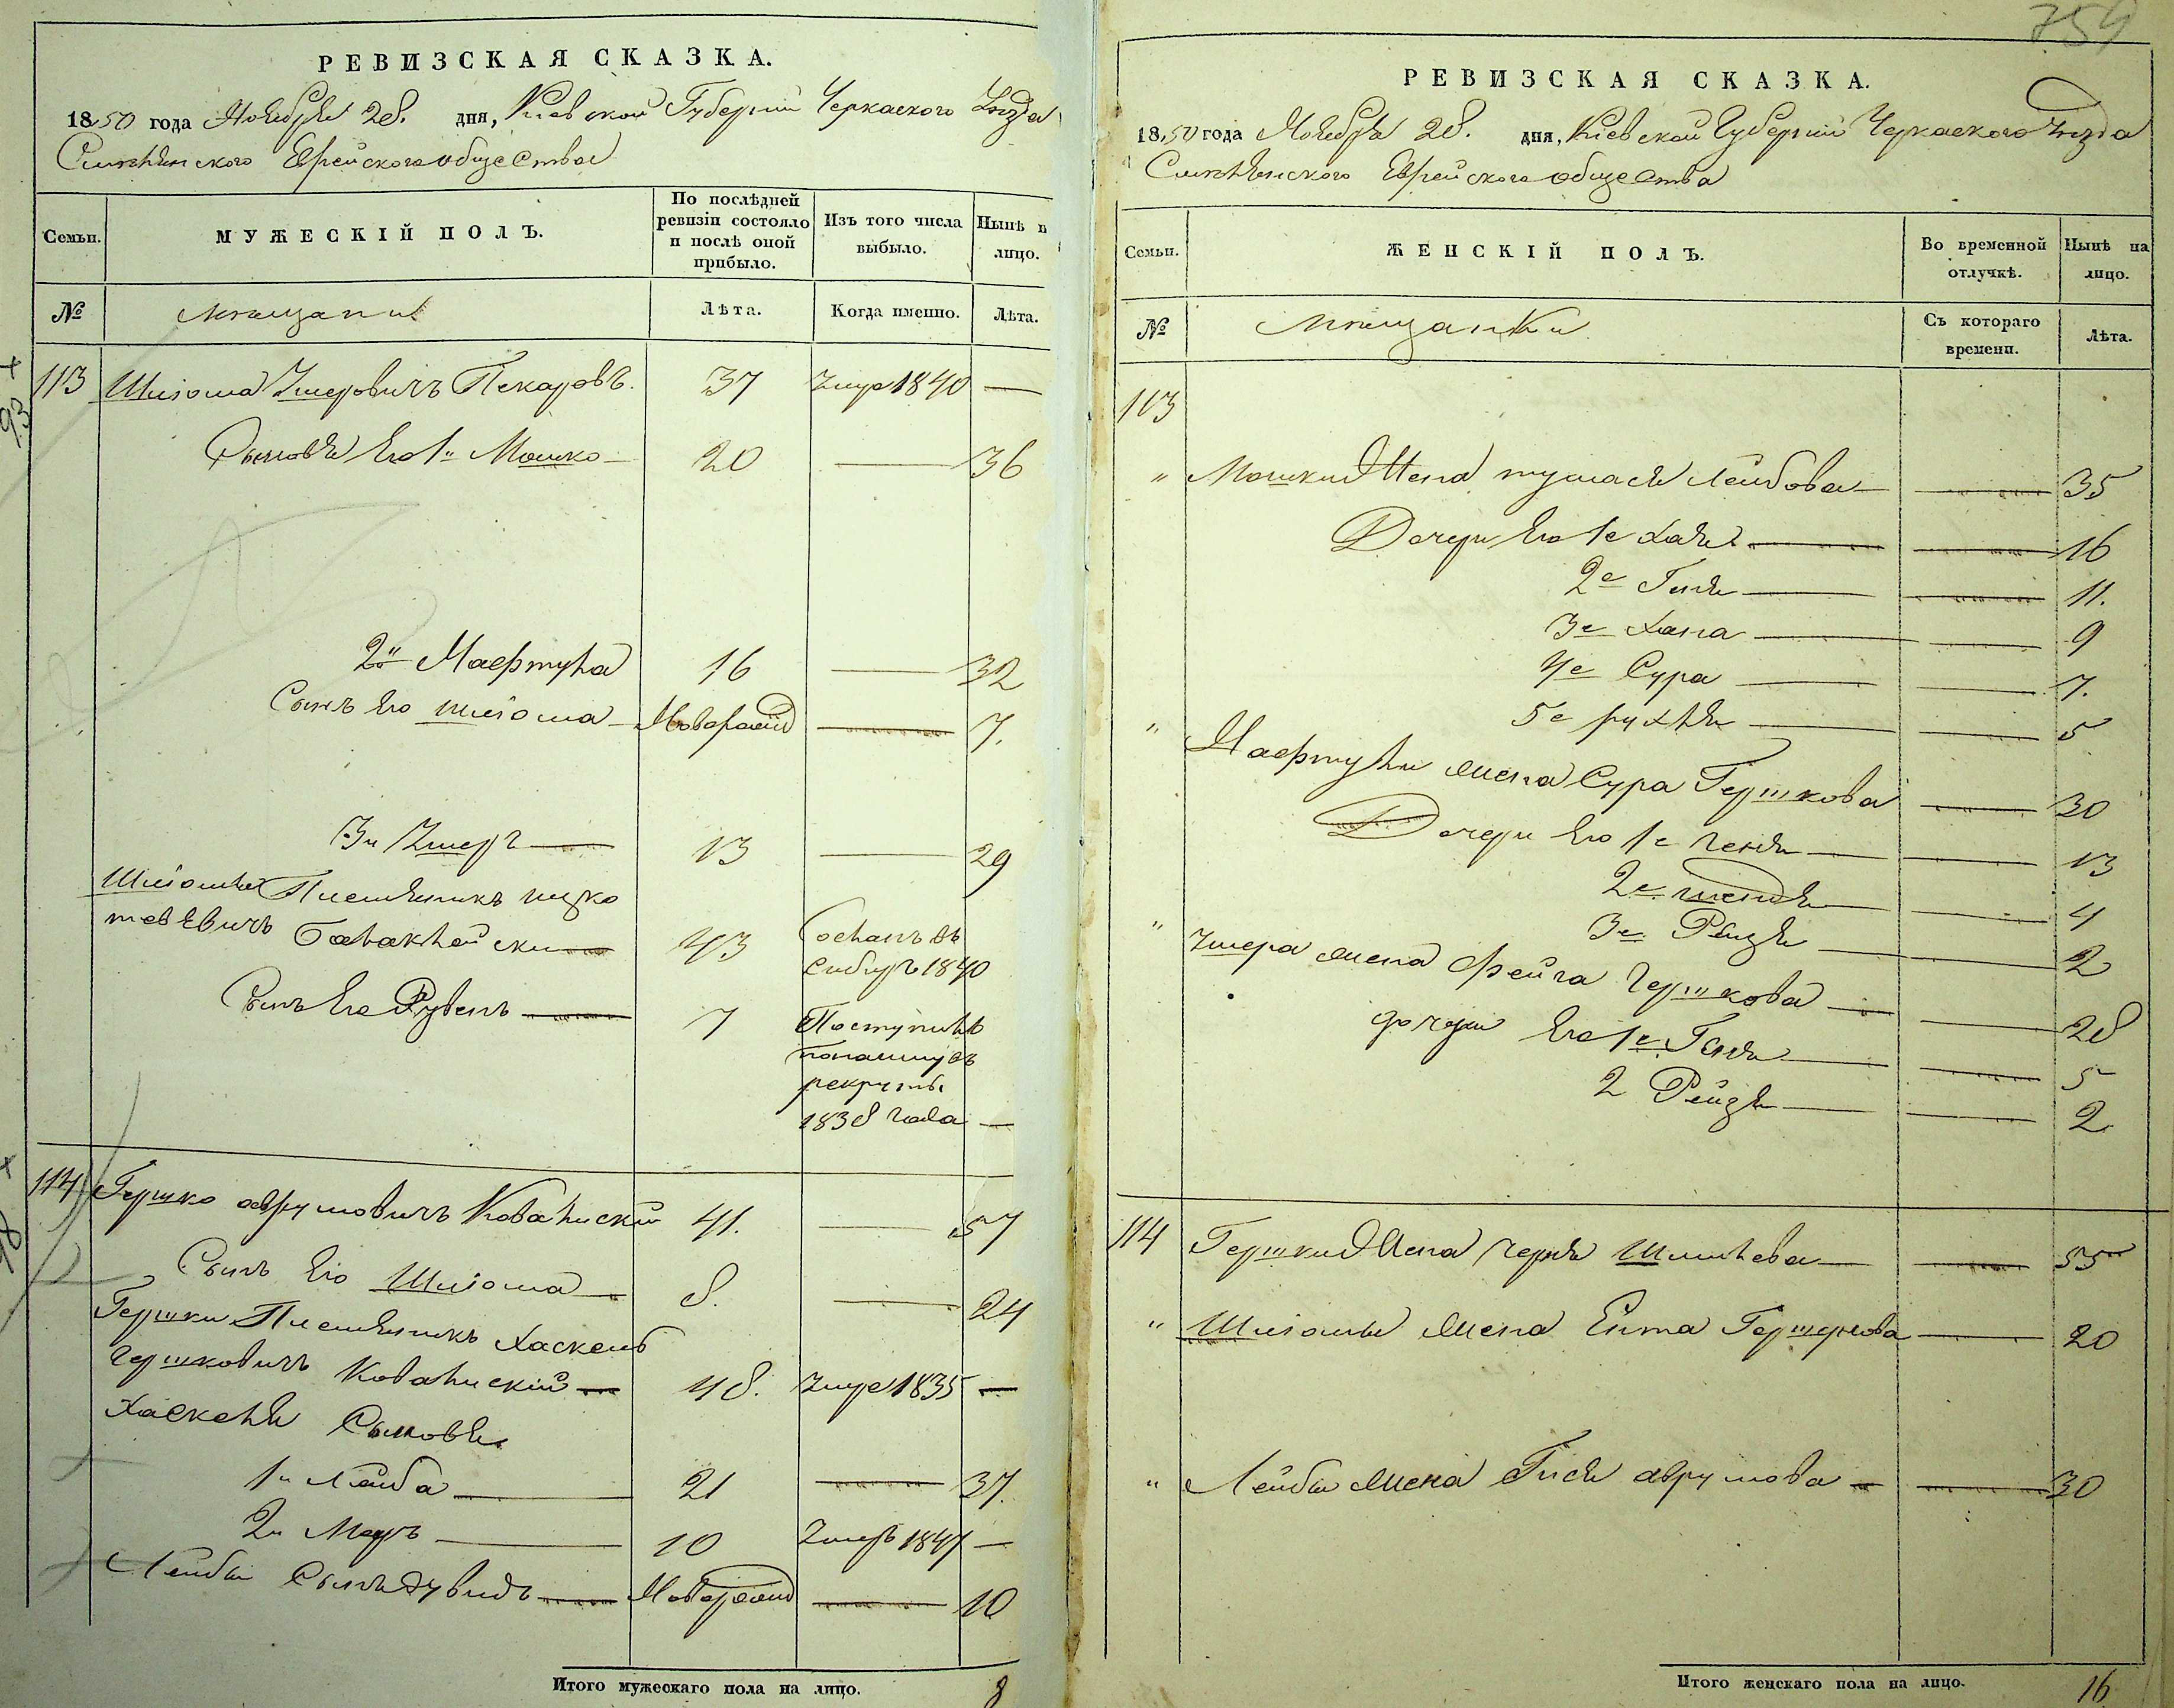 РЕВИЗСКАЯ СКАЗКА.
1850 года Ноября 28. дня, Киевской Губернiи Черкаского Уѣзда
Смѣлянского Еврейского общества
Семьи. МУЖЕСКІЙ ПОЛЪ. По послѣдней ревизіи состояло и послѣ оной прибыло. Изъ того числа выбыло. Нынѣ н лицо.
№ мѣщани Лѣта. Когда именно. Лѣта.
93
113 Шліома Умеровичъ Пекаровъ. 37 Умре 1840 —
Сыновья Его 1й Мошко — 20 — 36
2й Мафтула 16 — 32
Сынъ Его Шліома — Новорожд — 7.
3й Умеръ — 13 — 29
Шліомы Племянникъ ицко
товьевичъ Балаклейски — 43 Сосланъ въ
сибиръ 1840
Сынъ Его Рувенъ — 7 Поступилъ
рекруты
1838 года —
114 Гершко аврумовичъ Ковалискій 41. — 57
Сынъ Его Шліома — 8. — 24
Гершки Племянникъ Хаскель
Гершковичъ Ковалискій — 48. Умре 1835 —
Хаскеля Сыновья
1й Лейба — 21 — 37.
2й Меръ — 10 Умеръ 1847 —
Лейбы Сынъ дувидъ — Новорожд — 10
Итого мужескаго пола на лицо. 8
759
РЕВИЗСКАЯ СКАЗКА.
1850 года Ноября 28. дня, Кіевской Губерніи Черкаского Уѣзда
Смѣлянского Еврейского общества
Семьи. ЖЕНСКІЙ ПОЛЪ. Во временной отлучкѣ. Нынѣ на лицо.
№ мѣщанки Съ котораго времени. Лѣта.
113
" Мошки Жена Лейбова — — 35
Дочери Его 1е Хая — — 16
2е Геня — — 11.
3е Хана — — 9
4е Сура — — 7.
5е рухля — — 5
" Мафтулы жена Сура Гершкова — 30
Дочери Его 1е Геня — — 13
2е — — 4
3е Рейзя — — 2
" Умера жена фейга Гершкова — — 28
дочери Его 1е Геня — — 5
2 Рейзя — — 2
114 Гершки Жена черня Шмилева — — 55
" Шліомы жена Ента — — 20
" Лейбы жена Гися аврумова — — 30
Итого женскаго пола на лицо. 16